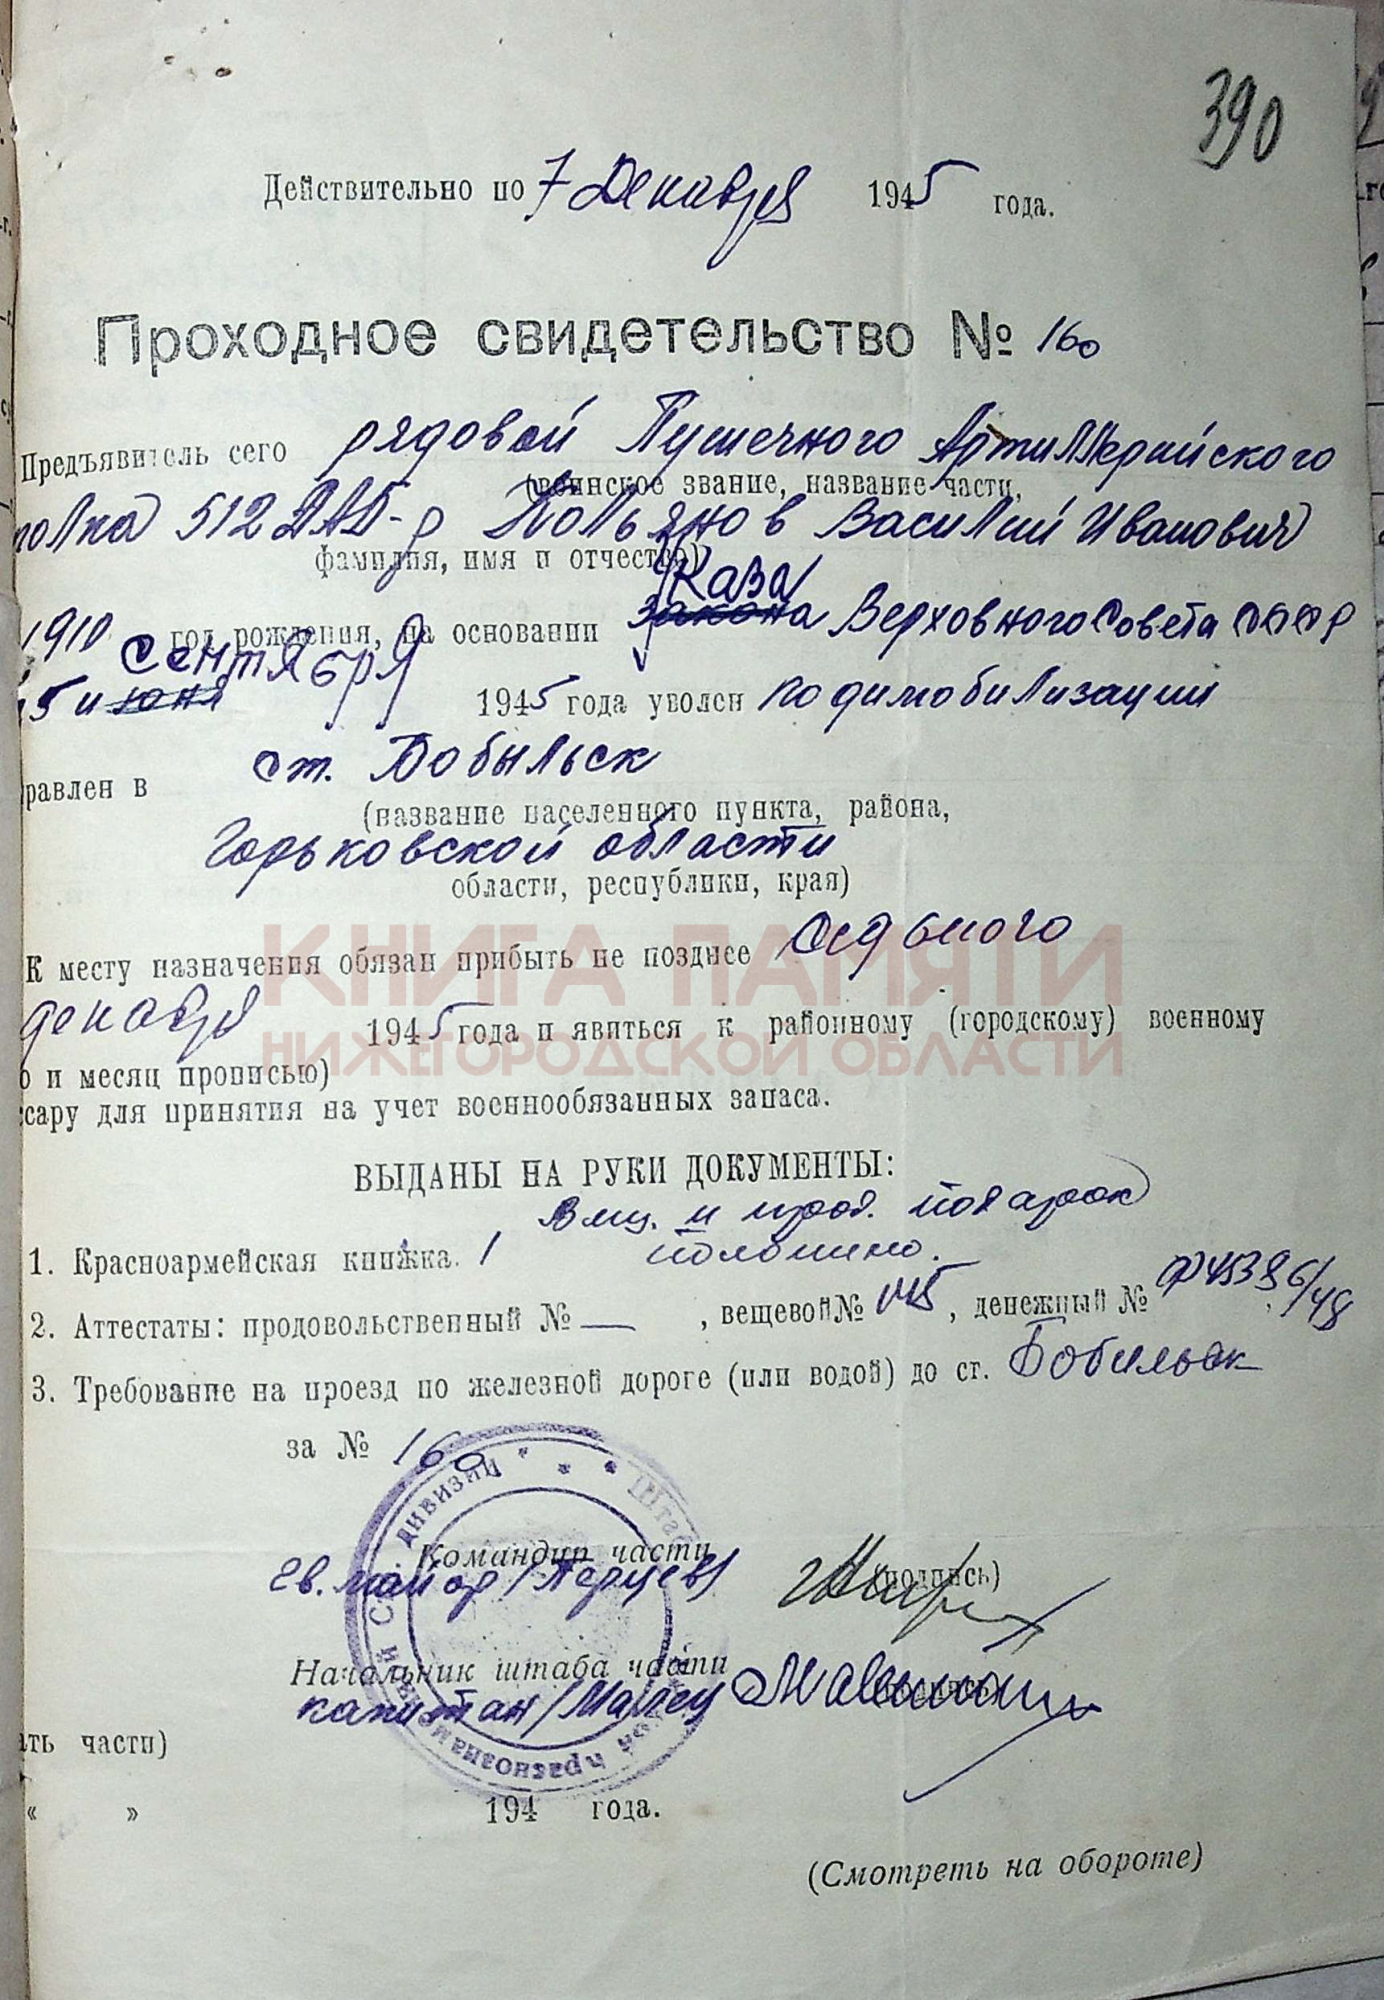 390
Действительно по 7 Декабря 1945 года.
Проходное свидетельство № 160
Предъявитель сего рядовой Пушечного Артиллерийского
(воинское звание, название части,
полка 512 ДАБ-р Кольянов Василий Иванович
фамилия, имя и отчество)
Указа
1910 год рождения, на основании закона Верховного Совета СССР
сентября
25 и июня 1945 года уволен по димобилизации
равлен в ст. Бобыльск
(название населенного пункта, района,
Горьковской области
области, республики, края)
К месту назначения обязан прибыть не позднее седьмого
декабря 1945 года и явиться к районному (городскому) военному
о и месяц прописью)
ссару для принятия на учет военнообязанных запаса.
КНИГА ПАМЯТИ
НИЖЕГОРОДСКОЙ ОБЛАСТИ
ВЫДАНЫ НА РУКИ ДОКУМЕНТЫ:
Вещ. и прод. подарок
1. Красноармейская книжка. 1 получено.
2. Аттестаты: продовольственный № — , вещевой № , денежный №
3. Требование на проезд по железной дороге (или водой) до ст. Бобыльск
за № 160
Командир части
гв. майор /Перцев/ (подпись)
Начальник штаба части
капитан /Малец (подпись)
ать части)
« » 194 года.
(Смотреть на обороте)